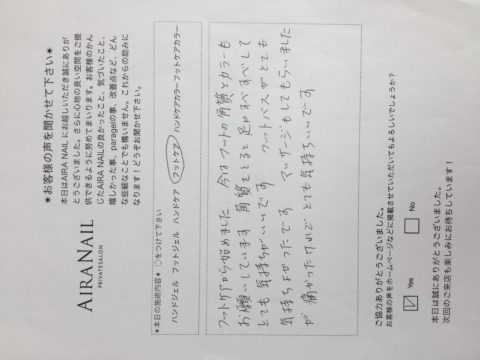 ★お客様の声を聞かせて下さい★
本日はAIRA NAIL にお越しいただき誠にありが
とうございました。さらに心地の良い空間をご提
供できるように努めてまいります。お客様のかん
じたAIRA NAILの良かったこと、気づいたこと、
嬉しかった事、paragelの事、改善点など、どん
な些細なことでも構いません。これからの励みに
なります！どうぞお聞かせ下さい。
AIRA NAIL
PRIVATE SALON
★本日の施術内容★ ○をつけて下さい
ハンドジェル フットジェル ハンドケア フットケア ハンドケアカラー フットケアカラー
フットケアから始めました 今はフットの角質とカラーも
お願いしています 角質をとると足がすべすべして
とても気持ちがいいです フットバスがとても
気持ちよかったです マッサージもしてもらいました
が痛かったけれどとても気持ちいいです
ご協力ありがとうございました。
お客様の声をホームページなどに掲載させていただいてもよろしいでしょうか？
Yes No
本日は誠にありがとうございました。
次回のご来店も楽しみにお待ちしています！